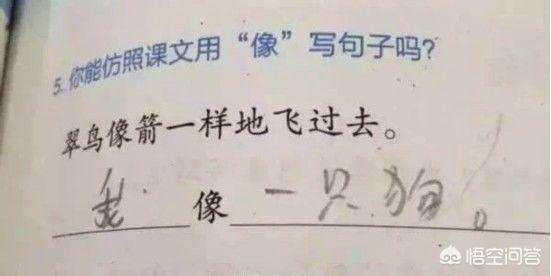 5.你能仿照课文用“像”写句子吗?
翠鸟像箭一样地飞过去。
我像一只狗。
悟空问答